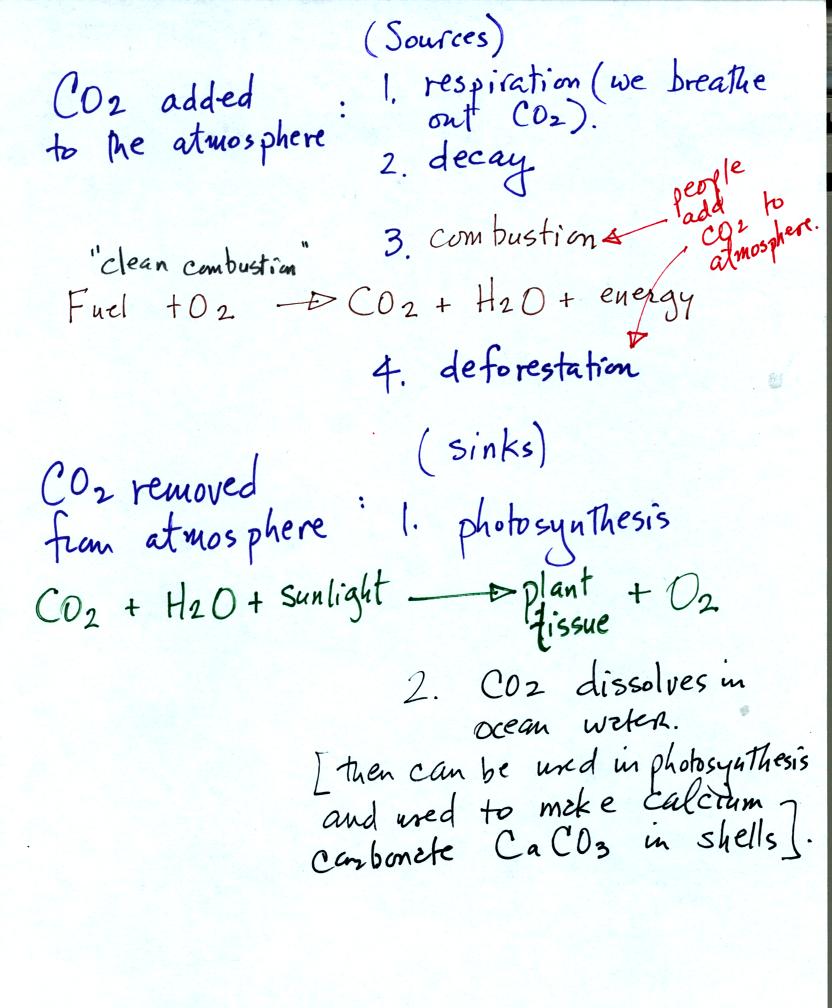 (Sources)
CO2 added
to the atmosphere :
1. respiration (we breathe
out CO2).
2. decay
3. combustion
people
add
CO2 to
atmosphere.
"clean combustion"
Fuel + O2 → CO2 + H2O + energy
4. deforestation
(sinks)
CO2 removed
from atmosphere :
1. photosynthesis
CO2 + H2O + sunlight → plant
tissue + O2
2. CO2 dissolves in
ocean water.
[then can be used in photosynthesis
and used to make calcium
carbonate CaCO3 in shells].